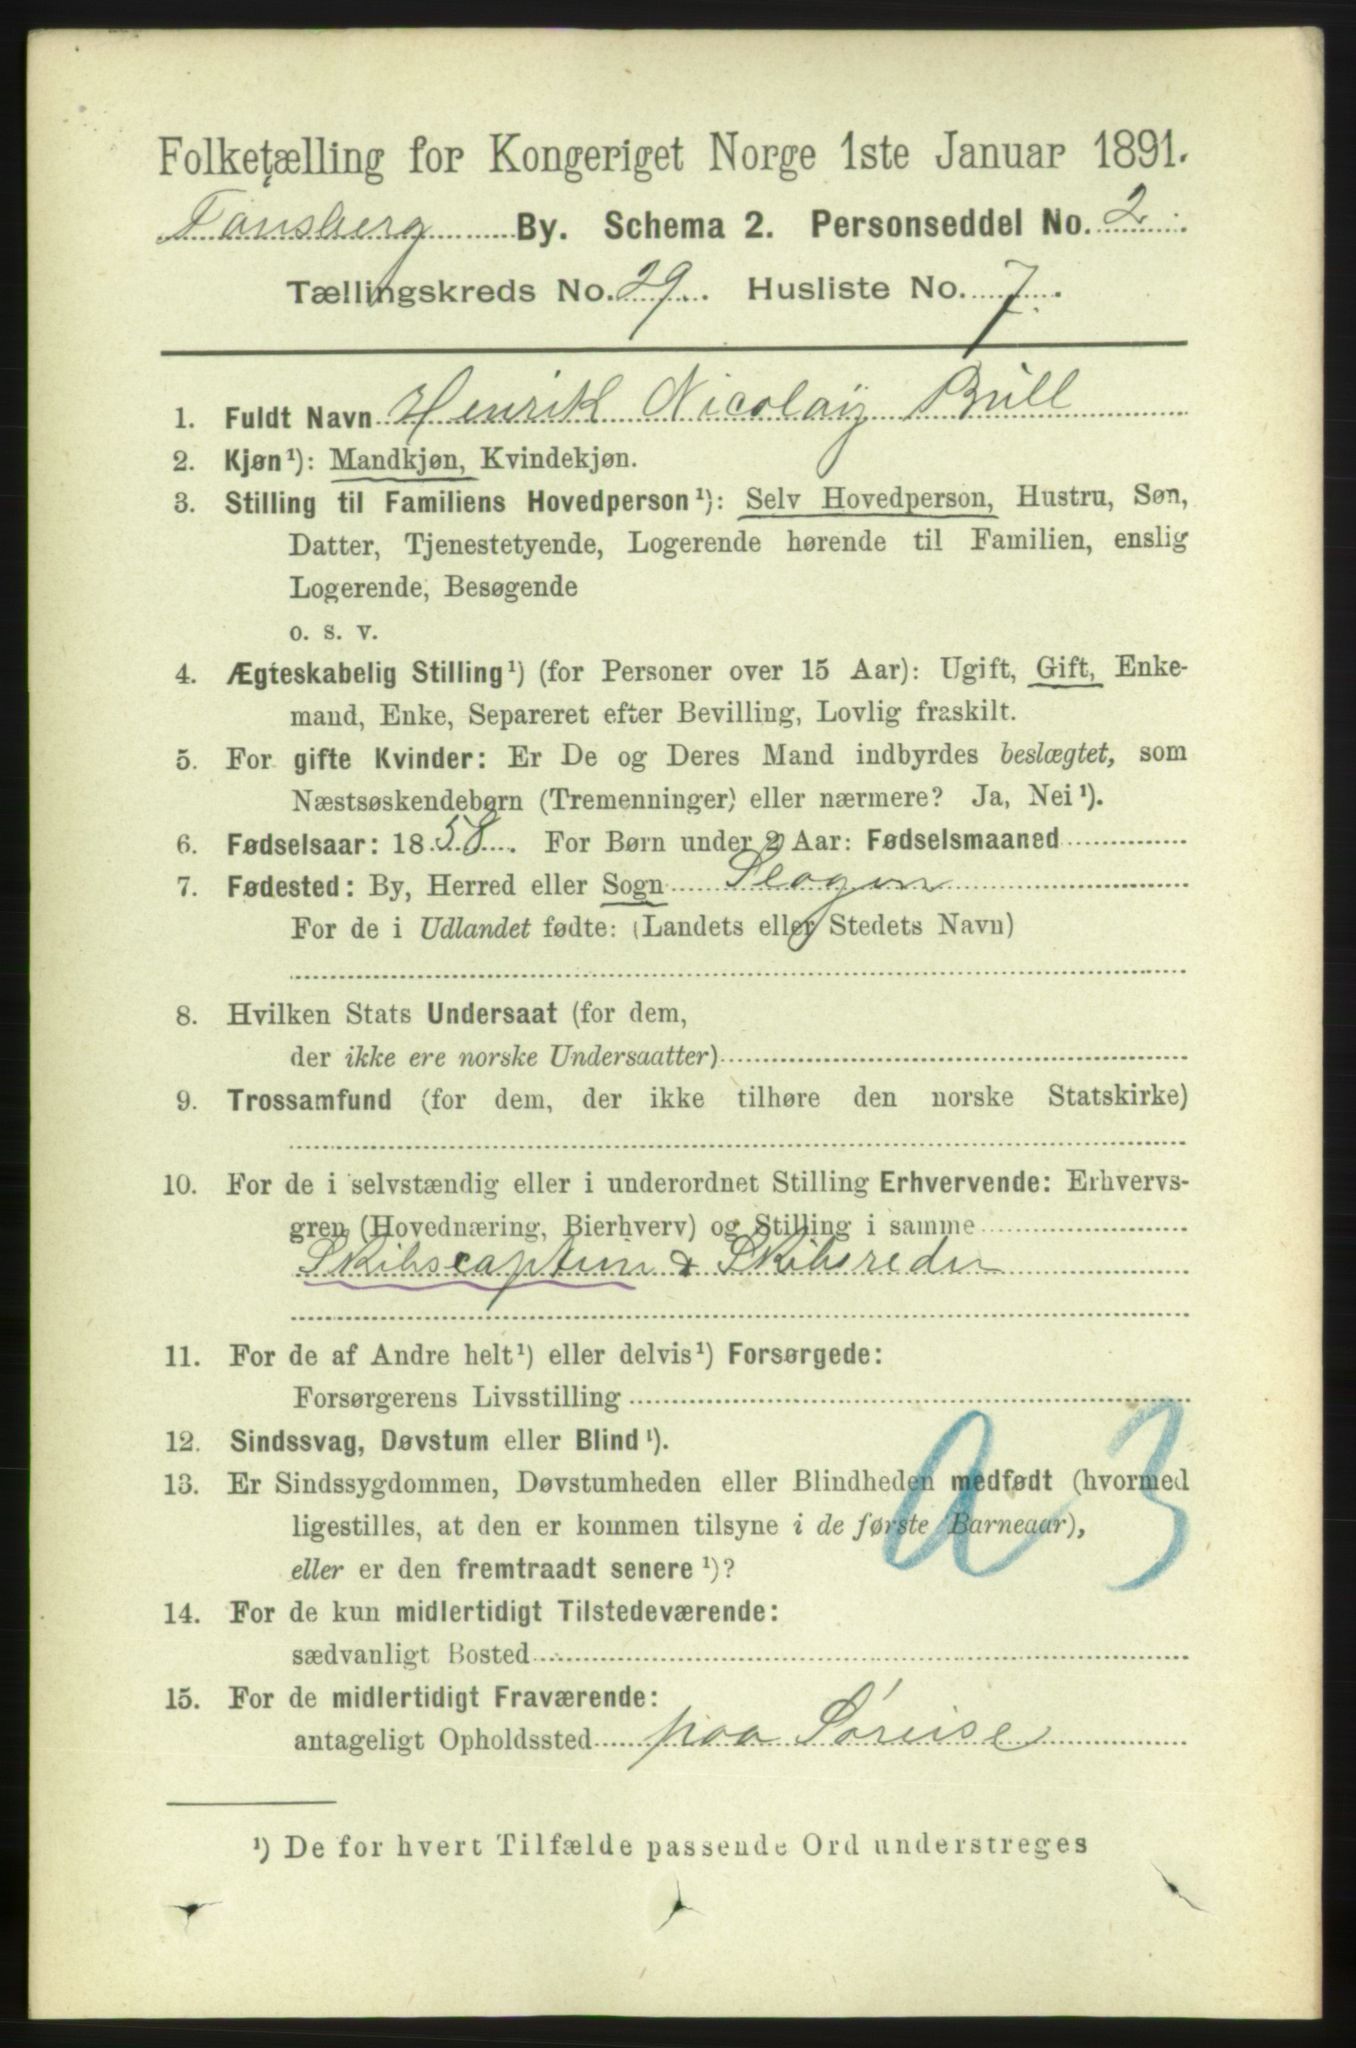 Folketælling for Kongeriget Norge 1ste Januar 1891.
Tønsberg By. Schema 2. Personseddel No. 2
Tællingskreds No. 29. Husliste No. 7.
1. Fuldt Navn Henrik Nicolaÿ Bull
2. Kjøn¹): Mandkjøn, Kvindekjøn.
3. Stilling til Familiens Hovedperson¹): Selv Hovedperson, Hustru, Søn,
Datter, Tjenestetyende, Logerende hørende til Familien, enslig
Logerende, Besøgende
o. s. v.
4. Ægteskabelig Stilling¹) (for Personer over 15 Aar): Ugift, Gift, Enke-
mand, Enke, Separeret efter Bevilling, Lovlig fraskilt.
5. For gifte Kvinder: Er De og Deres Mand indbyrdes beslægtet, som
Næstsøskendebørn (Tremenninger) eller nærmere? Ja, Nei¹).
6. Fødselsaar: 1858. For Børn under 2 Aar: Fødselsmaaned
7. Fødested: By, Herred eller Sogn Slagen
For de i Udlandet fødte: (Landets eller Stedets Navn)
8. Hvilken Stats Undersaat (for dem,
der ikke ere norske Undersaatter)
9. Trossamfund (for dem, der ikke tilhøre den norske Statskirke)
10. For de i selvstændig eller i underordnet Stilling Erhvervende: Erhvervs-
gren (Hovednæring, Bierhverv) og Stilling i samme
Skibscaptein & Skibsreder
11. For de af Andre helt¹) eller delvis¹) Forsørgede:
Forsørgerens Livsstilling
12. Sindssvag, Døvstum eller Blind¹).
13. Er Sindssygdommen, Døvstumheden eller Blindheden medfødt (hvormed
ligestilles, at den er kommen tilsyne i de første Barneaar),
eller er den fremtraadt senere¹)?
a 3
14. For de kun midlertidigt Tilstedeværende:
sædvanligt Bosted
15. For de midlertidigt Fraværende:
antageligt Opholdssted paa Søreise
¹) De for hvert Tilfælde passende Ord understreges